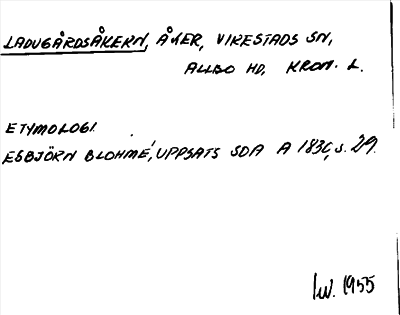 LADUGÅRDSÅKERN, ÅKER, VIRESTADS SN,
ALLBO HD, KRON. L.
ETYMOLOGI.
ESBJÖRN BLOHMÉ, UPPSATS SOA A 1830, S. 29.
1955